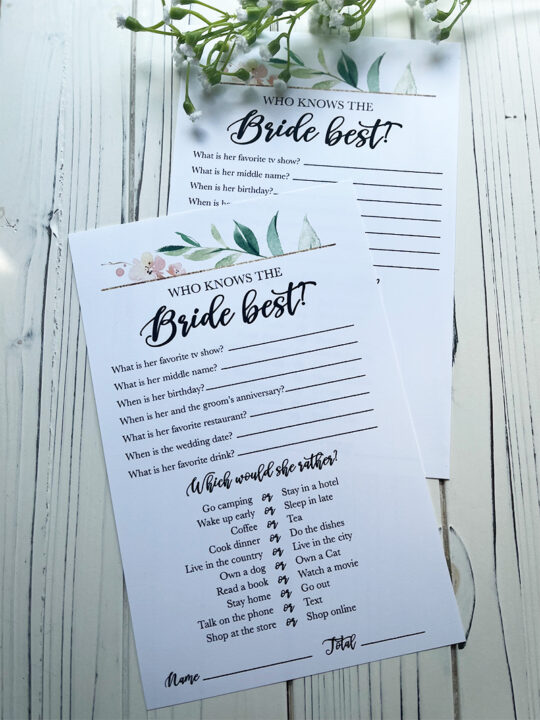 WHO KNOWS THE
Bride best?
What is her favorite tv show?
What is her middle name?
When is her birthday?
When is
WHO KNOWS THE
Bride best?
What is her favorite tv show?
What is her middle name?
When is her birthday?
When is her and the groom's anniversary?
What is her favorite restaurant?
When is the wedding date?
What is her favorite drink?
Which would she rather?
Go camping or Stay in a hotel
Wake up early or Sleep in late
Coffee or Tea
Cook dinner or Do the dishes
Live in the country or Live in the city
Own a dog or Own a Cat
Read a book or Watch a movie
Stay home or Go out
Talk on the phone or Text
Shop at the store or Shop online
Name Total